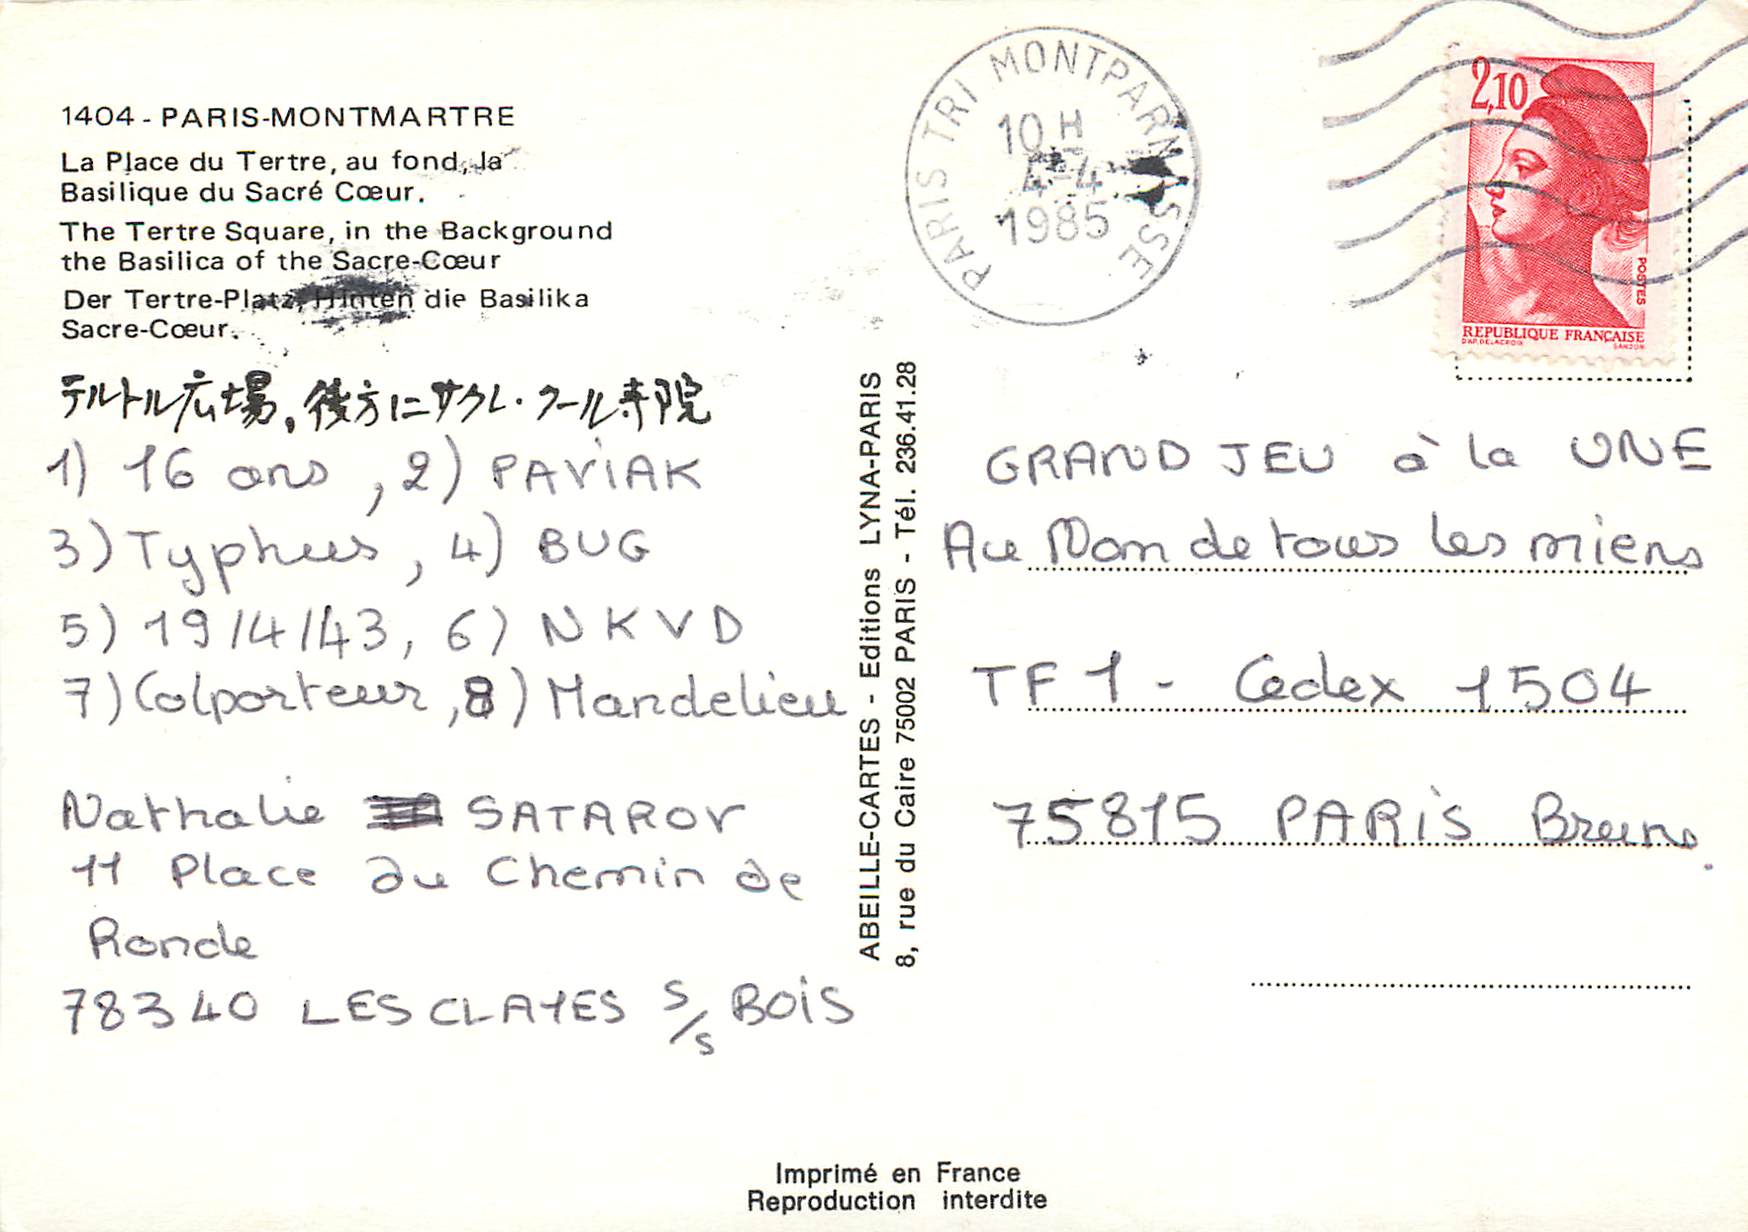 1404 - PARIS-MONTMARTRE
La Place du Tertre, au fond, la
Basilique du Sacré Cœur.
The Tertre Square, in the Background
the Basilica of the Sacre-Cœur
Der Tertre-Platz, Hinten die Basilika
Sacre-Cœur.
テルトル広場。後方にサクレ・クール寺院
1) 16 ans, 2) PAVIAK
3) Typhus, 4) BUG
5) 19/4/43, 6) NKVD
7) Colporteur, 8) Mandelieu
Nathalie SATAROV
11 Place du Chemin de
Ronde
78340 LES CLAYES S/S BOIS
ABEILLE-CARTES - Editions LYNA-PARIS
8, rue du Caire 75002 PARIS - Tél. 236.41.28
PARIS TRI MONTPARNASSE
10 H
4-4
1985
2,10
POSTES
REPUBLIQUE FRANÇAISE
D'AP. DELACROIX GANDON
GRAND JEU à la UNE
Au Nom de tous les miens
TF1 - Cedex 1504
75815 PARIS Brune.
Imprimé en France
Reproduction interdite